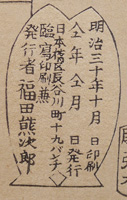 明治三十年十月　日印刷
仝年仝月　日発行
日本橋区長谷川町十九バンチ
臨写印刷兼
発行者　福田熊次郎